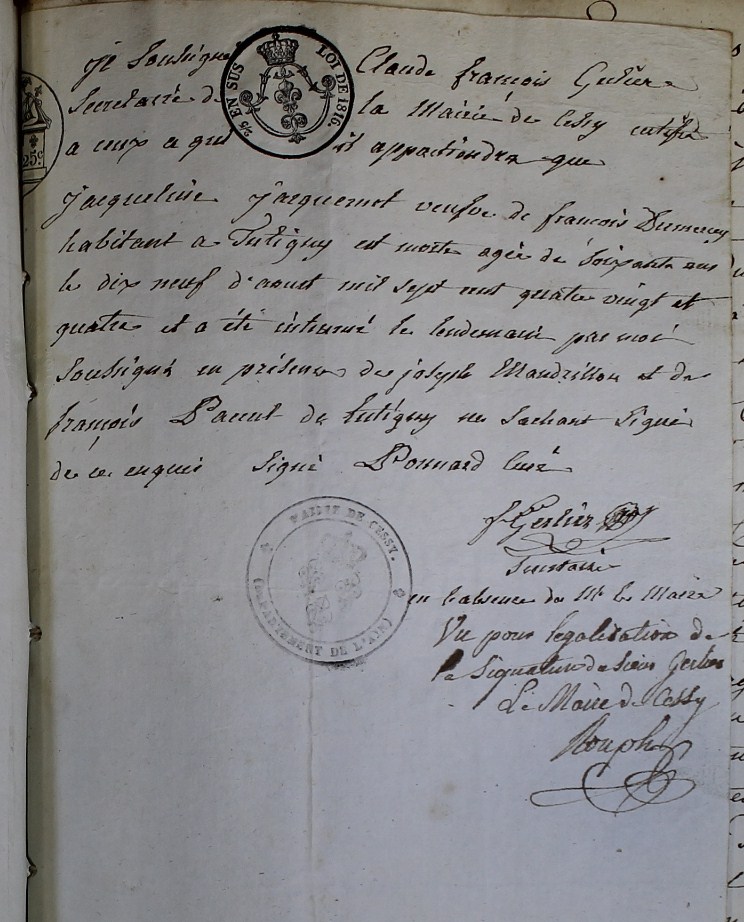 je soussigné Claude françois Gerlier
Secretaire de la Mairie de Cessy certifie
a ceux a qui il appartiendra que
jacqueline jacquemot veufve de françois Dumarey
habitant a Tutigny est morte agée de soixante ans
le dix neuf d'aoust mil sept cent quatre vingt et
quatre et a été interré le lendemain par moi
soussigné en présence de joseph Mandrillon et de
françois Pacut de tutigny ne sachant signé
de ce enquis signé Ponnard curé
EN SUS
LOI DE 1816.
25c.
f. Gerlier
Secretaire
en l'absence de Mr le Maire
Vu pour legalisation de
la signature du sieur Gerlier
Le Maire de Cessy
Rouph
MAIRIE DE CESSY.
(DÉPARTEMENT DE L'AIN)